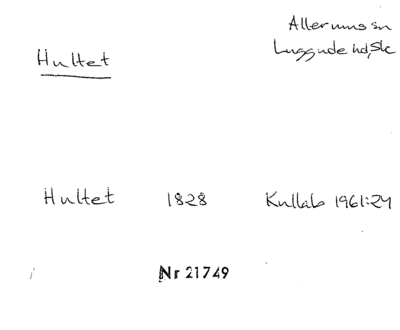 Hultet
Allerums sn
Luggude hd, Sk
Hultet 1828 Kullab 1961:24
Nr 21749